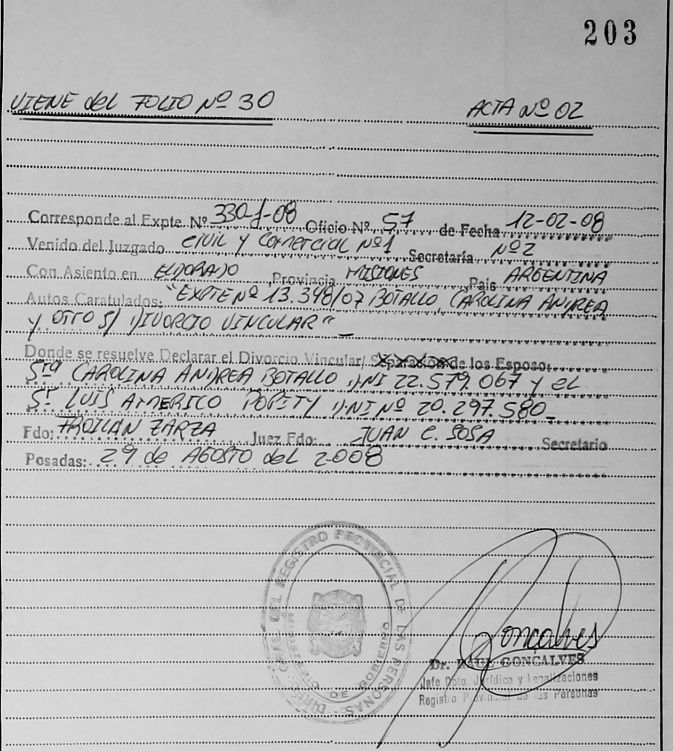 203
VIENE del FOLIO Nº 30
ACTA Nº 02
Corresponde al Expte. Nº 330-J-08 Oficio Nº 57 de Fecha 12-02-08
Venido del Juzgado CIVIL Y COMERCIAL Nº1 Secretaría Nº2
Con Asiento en ELDORADO Provincia MISIONES País ARGENTINA
Autos Caratulados: "EXPTE Nº 13.398/07 BOTALLO, CAROLINA ANDREA
Y OTRO S/ DIVORCIO VINCULAR"
Donde se resuelve Declarar el Divorcio Vincular/ Separación de los Esposo:
Sra CAROLINA ANDREA BOTALLO DNI 22.579.067 y el
Sr. LUIS AMERICO POPITY DNI Nº 20.297.580
Fdo: TROILAN ZARZA Juez Fdo: JUAN C. SOSA Secretario
Posadas: 29 de AGOSTO del 2008
REGISTRO PROVINCIAL DE LAS PERSONAS
Goncalves
Dr. RAUL GONCALVES
Jefe Dpto. Jurídico y Legalizaciones
Registro Provincial de las Personas